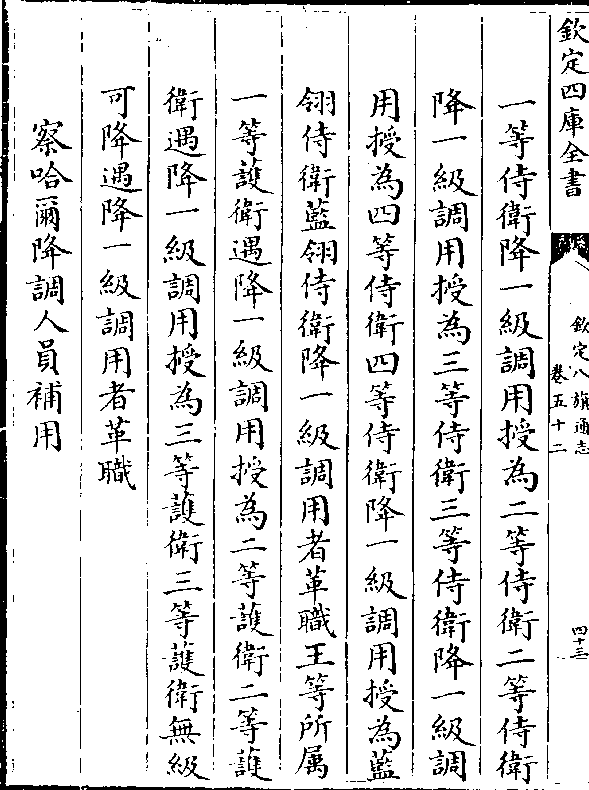 欽定四庫全書
欽定八旗通志
卷五十二
四十三
一等侍衛降一級調用授為二等侍衛二等侍衛
降一級調用授為三等侍衛三等侍衛降一級調
用授為四等侍衛四等侍衛降一級調用授為藍
翎侍衛藍翎侍衛降一級調用者革職王等所属
一等護衛遇降一級調用授為二等護衛二等護
衛遇降一級調用授為三等護衛三等護衛無級
可降遇降一級調用者革職
察哈爾降調人員補用